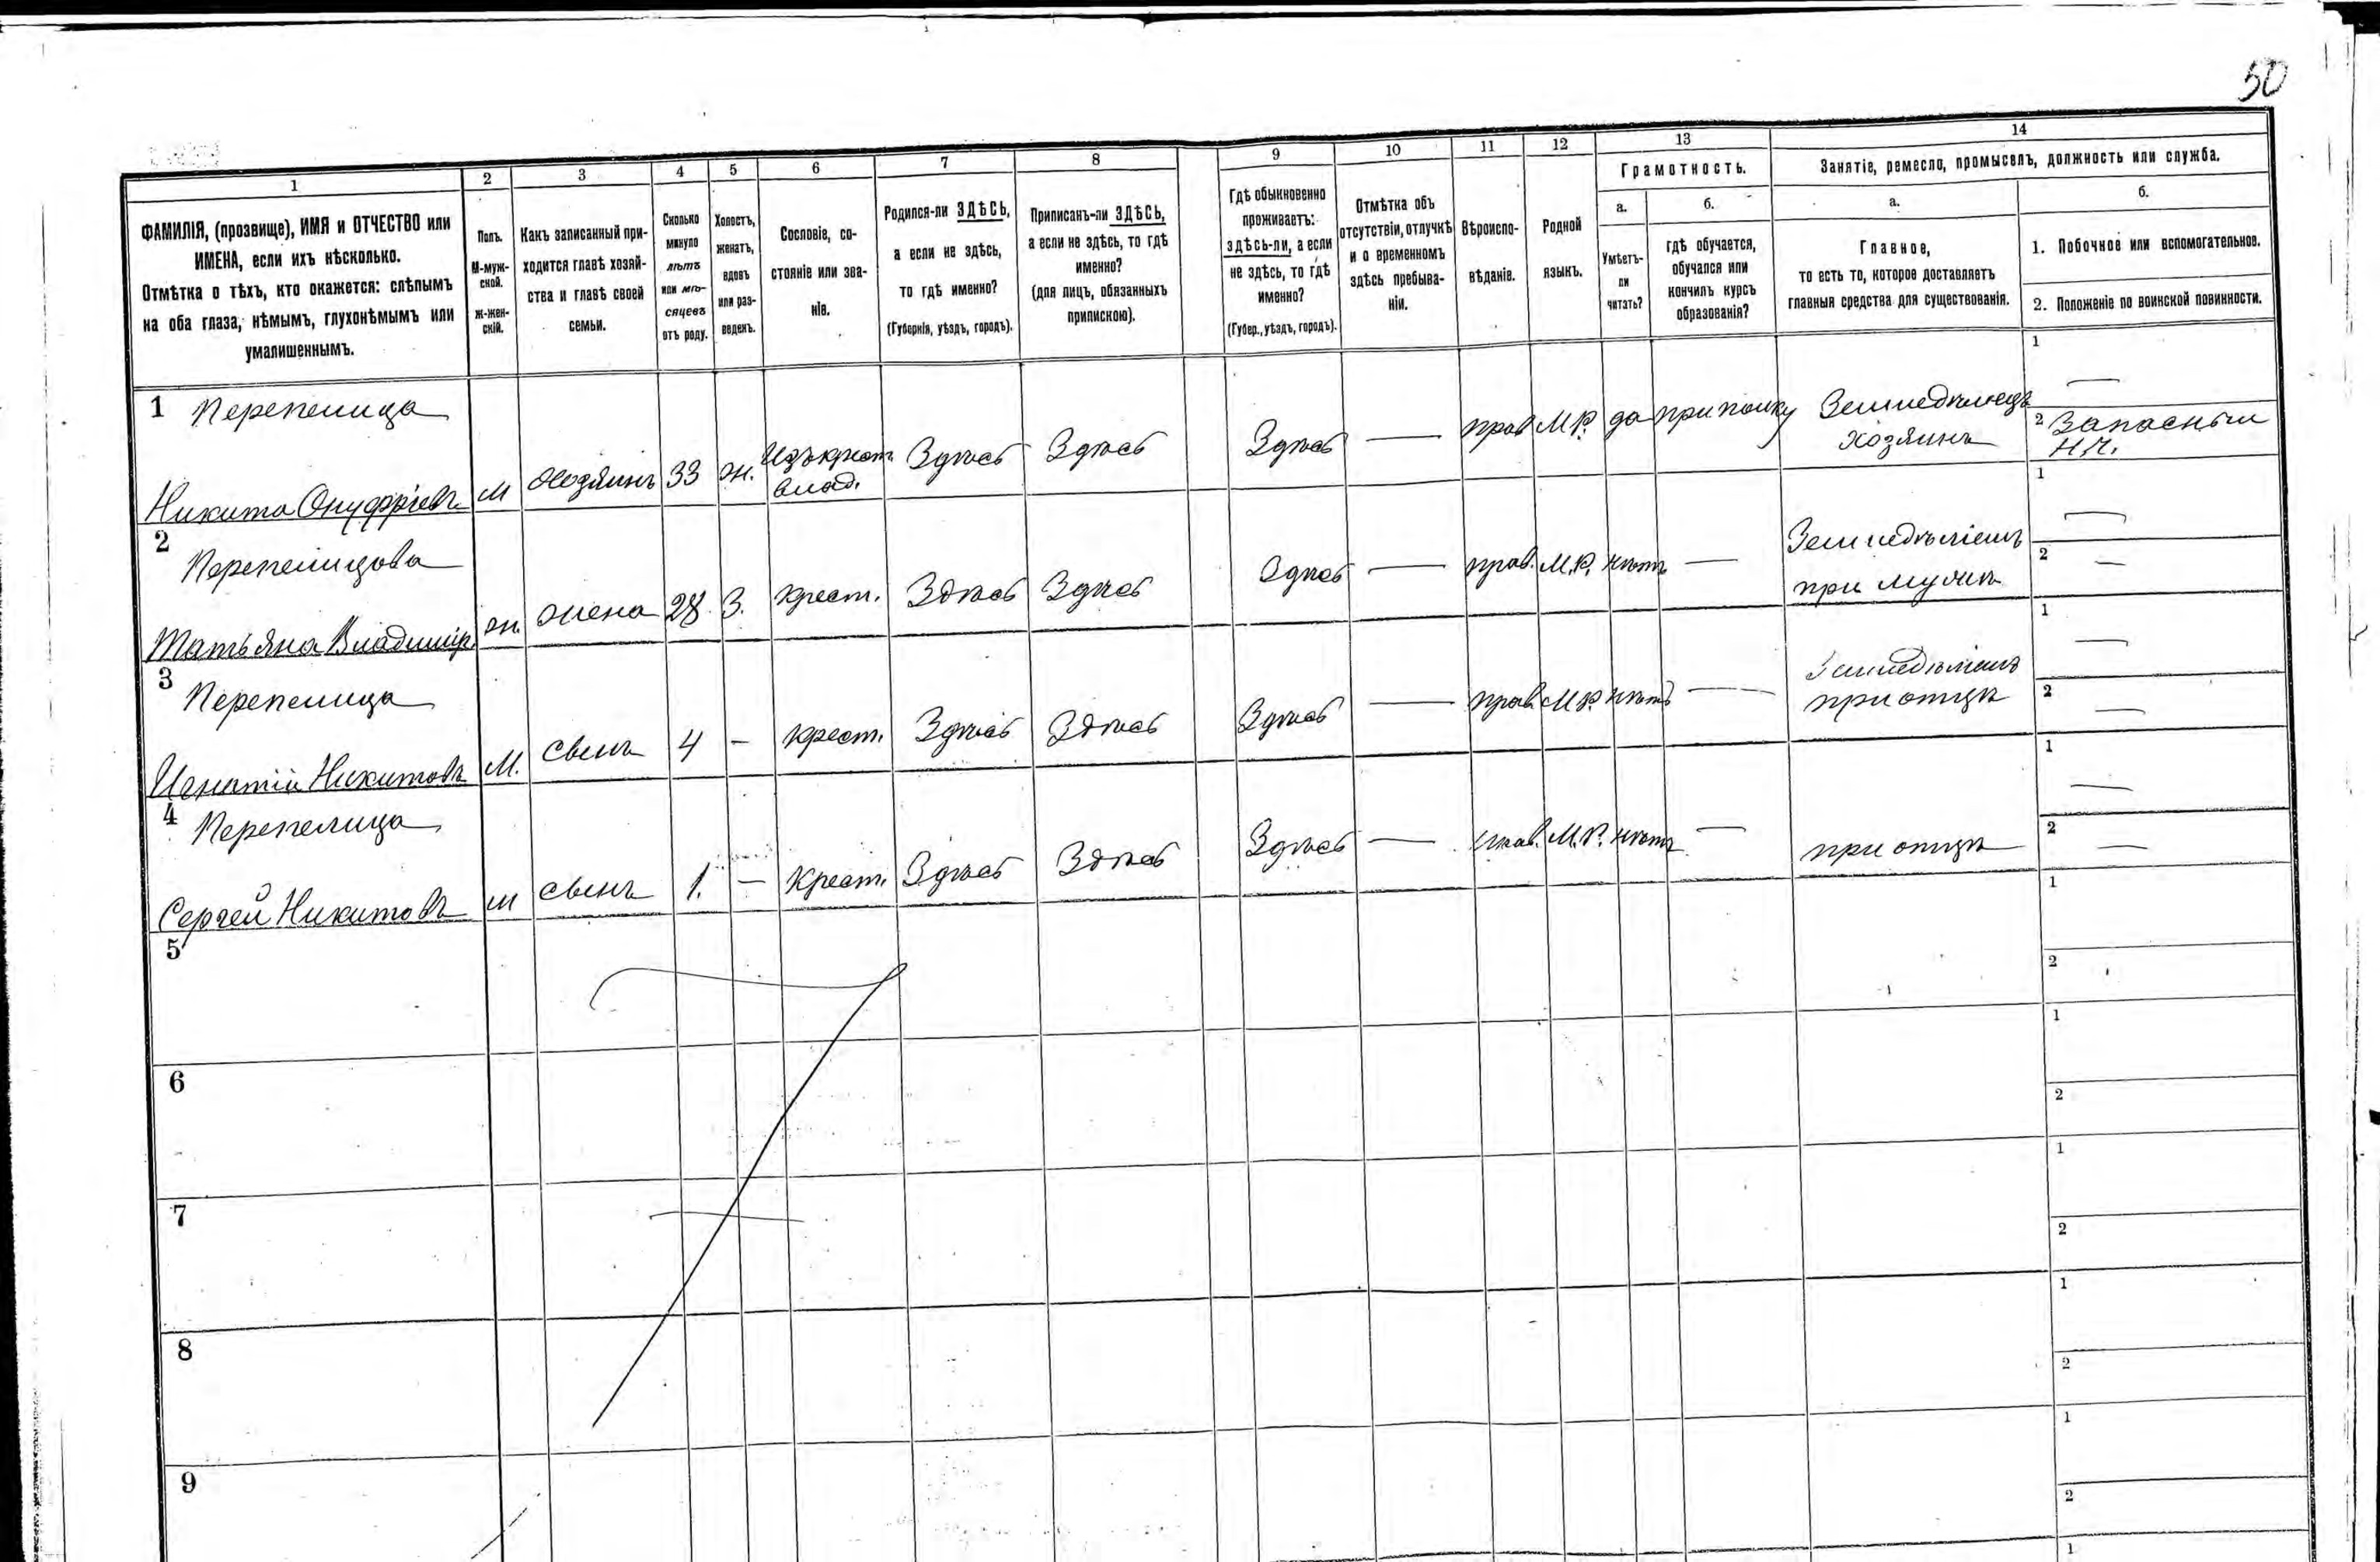 50
1
2
3
4
5
6
7
8
9
10
11
12
13
14
ФАМИЛІЯ, (прозвище), ИМЯ и ОТЧЕСТВО или
ИМЕНА, если ихъ нѣсколько.
Отмѣтка о тѣхъ, кто окажется: слѣпымъ
на оба глаза, нѣмымъ, глухонѣмымъ или
умалишеннымъ.
Полъ.
М-муж-
ской.
ж-жен-
скій.
Какъ записанный при-
ходится главѣ хозяй-
ства и главѣ своей
семьи.
Сколько
минуло
лѣтъ
или мѣ-
сяцевъ
отъ роду.
Холостъ,
женатъ,
вдовъ
или раз-
веденъ.
Сословіе, со-
стояніе или зва-
ніе.
Родился-ли ЗДѢСЬ,
а если не здѣсь,
то гдѣ именно?
(Губернія, уѣздъ, городъ).
Приписанъ-ли ЗДѢСЬ,
а если не здѣсь, то гдѣ
именно?
(для лицъ, обязанныхъ
припискою).
Гдѣ обыкновенно
проживаетъ:
здѣсь-ли, а если
не здѣсь, то гдѣ
именно?
(Губер., уѣздъ, городъ).
Отмѣтка объ
отсутствіи, отлучкѣ
и о временномъ
здѣсь пребыва-
ніи.
Вѣроиспо-
вѣданіе.
Родной
языкъ.
Грамотность.
а.
Умѣетъ-
ли
читать?
б.
гдѣ обучается,
обучался или
кончилъ курсъ
образованія?
Занятіе, ремесло, промыселъ, должность или служба.
а.
Главное,
то есть то, которое доставляетъ
главныя средства для существованія.
б.
1. Побочное или вспомогательное.
2. Положеніе по воинской повинности.
1 Перепелица
Никита Онуфріевъ м Хозяинъ 33 ж. Изъ крест. влад. Здѣсь Здѣсь Здѣсь — прав М.Р. да при полку Земледѣлецъ
хозяинъ
1 —
2 Запасный
Н.Ч.
2 Перепелицова
Татьяна Владимір. ж. жена 28 З. крест. Здѣсь Здѣсь Здѣсь — прав. М.Р. нѣтъ — Земледѣліемъ
при мужѣ
1 —
2 —
3 Перепелица
Игнатій Никитовъ М. сынъ 4 — крест. Здѣсь Здѣсь Здѣсь — прав. М.Р. нѣтъ — Земледѣліемъ
при отцѣ
1 —
2 —
4 Перепелица
Сергей Никитовъ м сынъ 1. — Крест. Здѣсь Здѣсь Здѣсь — прав. М.Р. нѣтъ — при отцѣ
1 —
2 —
5
1
2
6
1
2
7
1
2
8
1
2
9
1
2
1